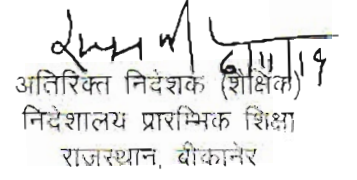 6/11/19
अतिरिक्त निदेशक (शैक्षिक)
निदेशालय प्रारम्भिक शिक्षा
राजस्थान, बीकानेर